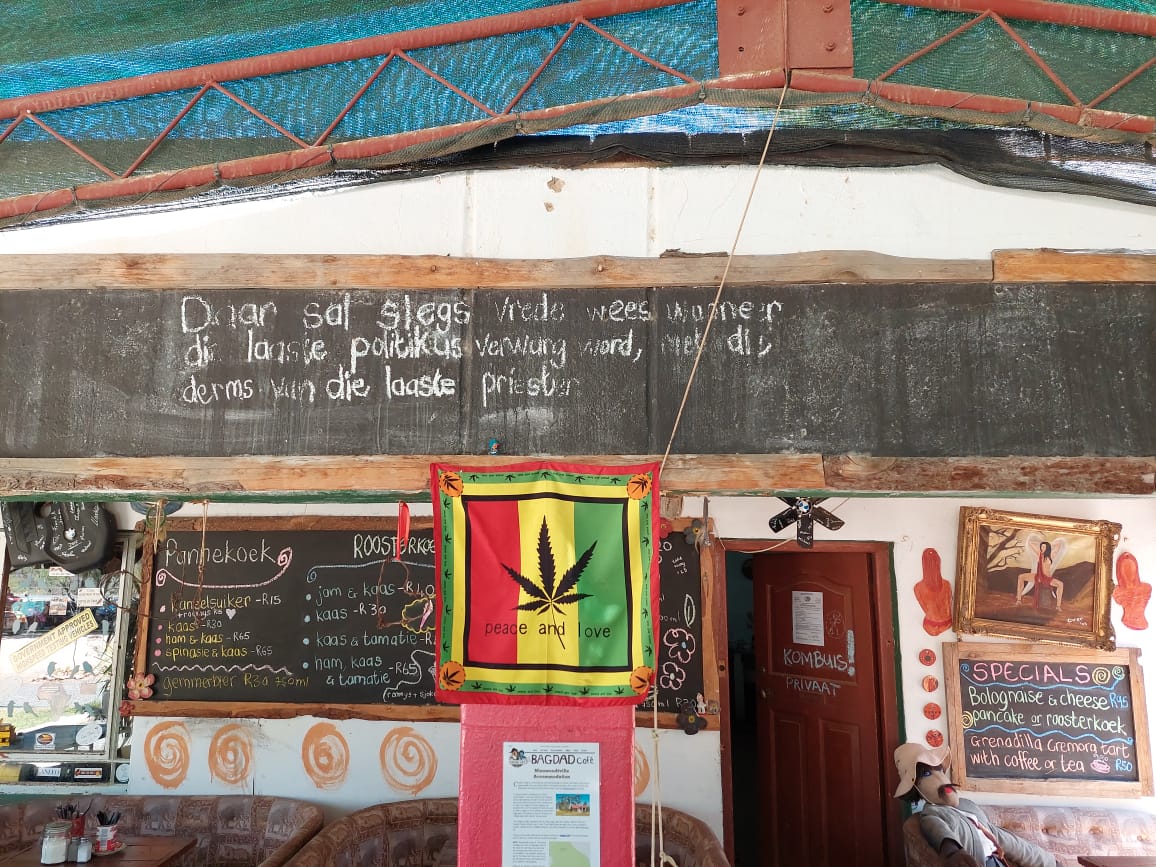 Daar sal slegs vrede wees wanneer
die laaste politikus verwurg word, met die
derms van die laaste priester
Pannekoek
kaneelsuiker - R15
kaas - R30
ham & kaas - R65
spinasie & kaas - R65
gemmerbier R30 750ml
ROOSTERKOE
jam & kaas - R40
kaas - R30
kaas & tamatie - R
ham, kaas
& tamatie - R65
peace and love
GOVERNMENT APPROVED
KOMBUIS
PRIVAAT
SPECIALS
Bolognaise & cheese R45
pancake or roosterkoek
Grenadilla Cremora tart
with coffee or tea R50
BAGDAD Café
Accommodation